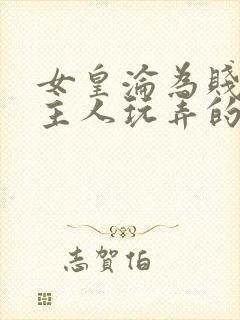 女皇淪為賤
主人玩弄的
志賀伯